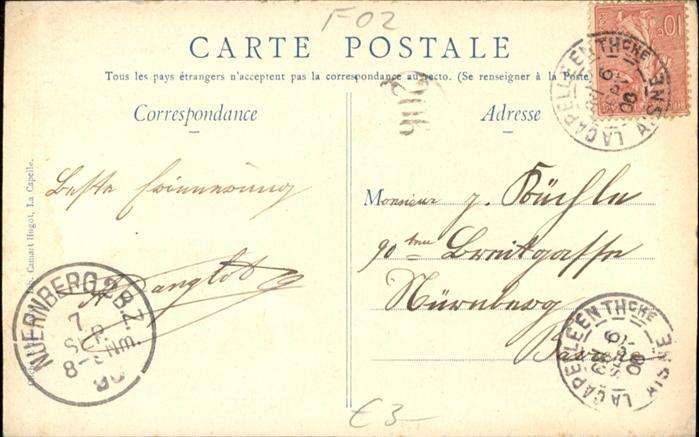 F-02
CARTE POSTALE
Tous les pays étrangers n'acceptent pas la correspondance au recto. (Se renseigner à la Poste)
Correspondance
Adresse
Beste Erinnerung
Langlot
Monsieur J. Büchle
90 Breitgasse
Nürnberg
Bavière
Camart Hugot, La Capelle.
10
LA CAPELLE EN THCHE
AISNE
NUERNBERG 2 B.Z.
7
SEP.
8-9 Nm.
06
LA CAPELLE EN THCHE
AISNE
€3-